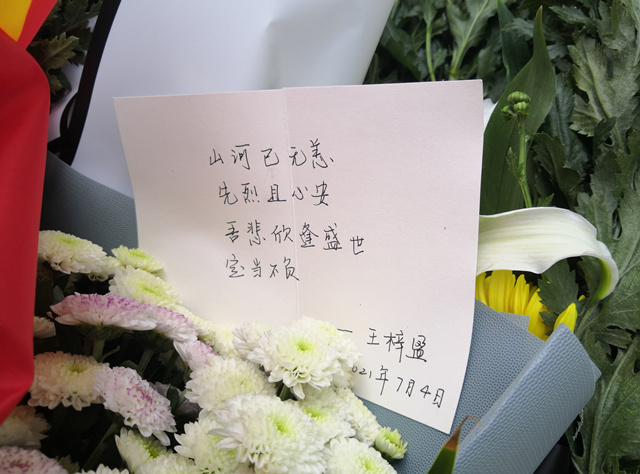 山河已无恙
先烈且心安
吾悲欣逢盛世
定当不负
— 王梓
021年7月4日